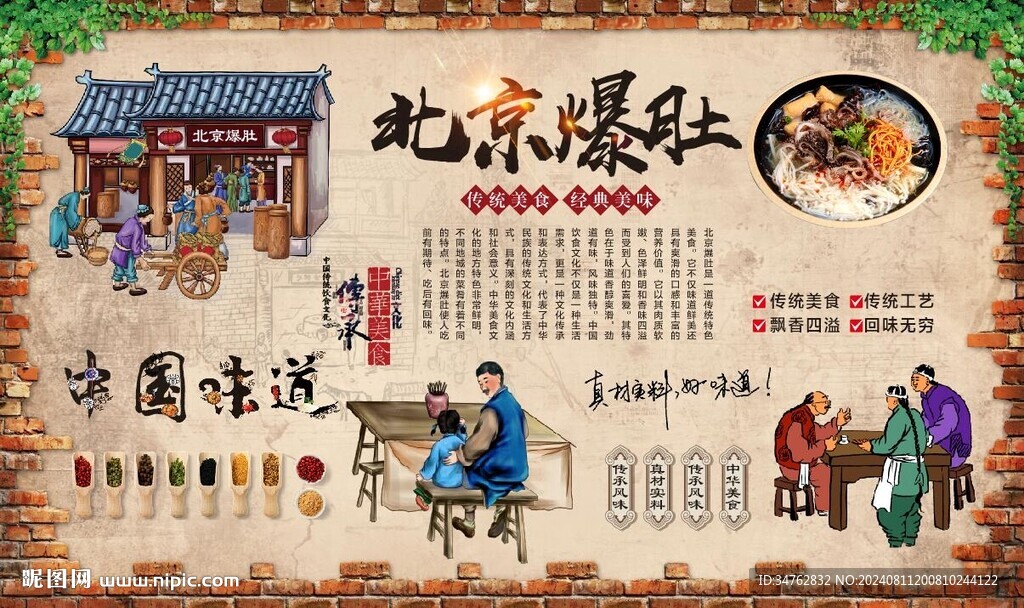 北京爆肚
北京爆肚
传统美食 经典美味
北京爆肚是一道传统特色
美食。它不仅味道鲜美还
具有爽滑的口感和丰富的
营养价值。它以其肉质软
嫩、色泽鲜明和香味四溢
而受到人们的喜爱。其特
色在于味道香醇爽滑,劲
道有味,风味独特。中国
饮食文化不仅是一种生活
需求,更是一种文化传承
和表达方式,代表了中华
民族的传统文化和生活方
式,具有深刻的文化内涵
和社会意义。中华美食文
化的地方特色非常鲜明,
不同地域的菜肴有着不同
的特点。北京爆肚使人吃
前有期待、吃后有回味。
中国传统饮食文化
传承
中華美食
文化
传统美食 传统工艺
飘香四溢 回味无穷
中国味道
真材实料,好味道!
传承风味
真材实料
传承风味
中华美食
昵图网 www.nipic.com
ID:34762832 NO:20240811200810244122